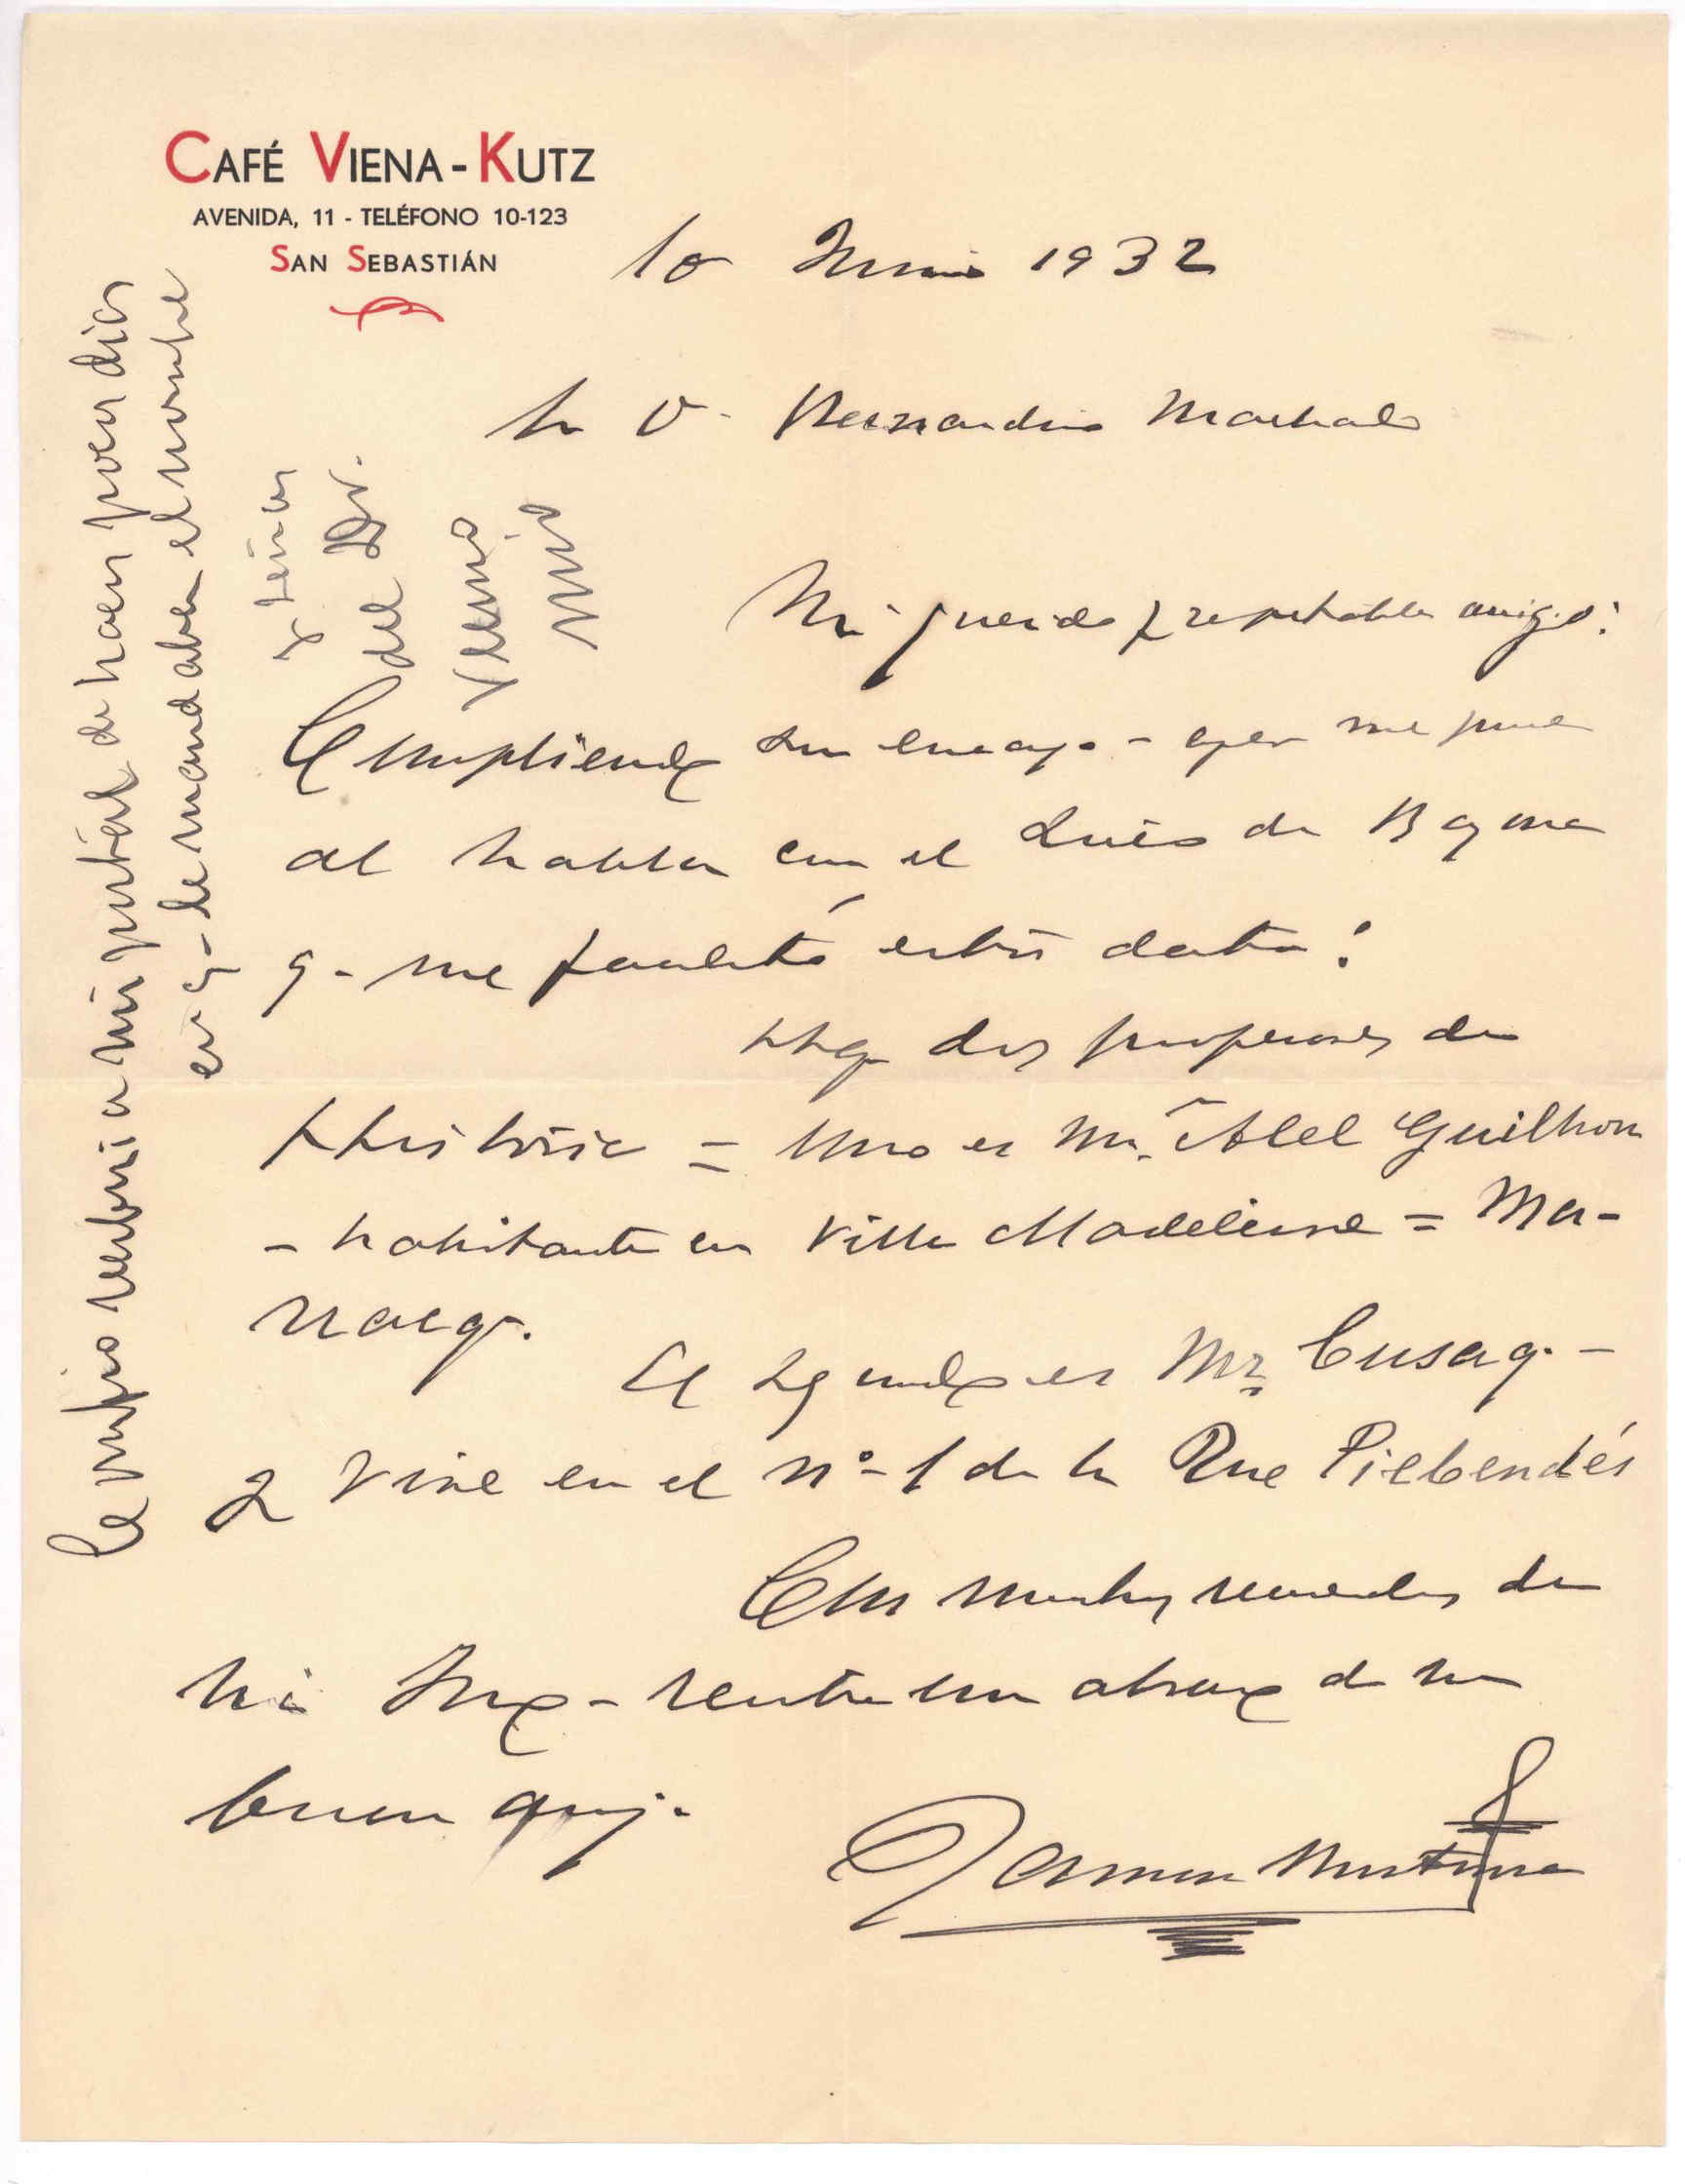 CAFÉ VIENA-KUTZ
AVENIDA, 11 - TELÉFONO 10-123
SAN SEBASTIÁN
10 Junio 1932
Sr D. Bernardino Machado
Mi querido y respetable amigo:
Cumpliendo su encargo - ayer me puse
al habla con el Liceo de Bayona
q. me facilitó estos datos:
Hay dos profesores de
Historia = Uno es Mr. Abel Guilhon
- habitante en Villa Madeleine = Ma-
rracq.
El segundo es Mr. Cusacq. -
q vive en el nº-1 de la Rue Pielbendés
Con muchos recuerdos de
mi - un abrazo de su
buen amigo
Ramon
Se mejo recibiria mi postal de hace pocos dias
en q - le mandaba el nombre
y señas
del Dr.